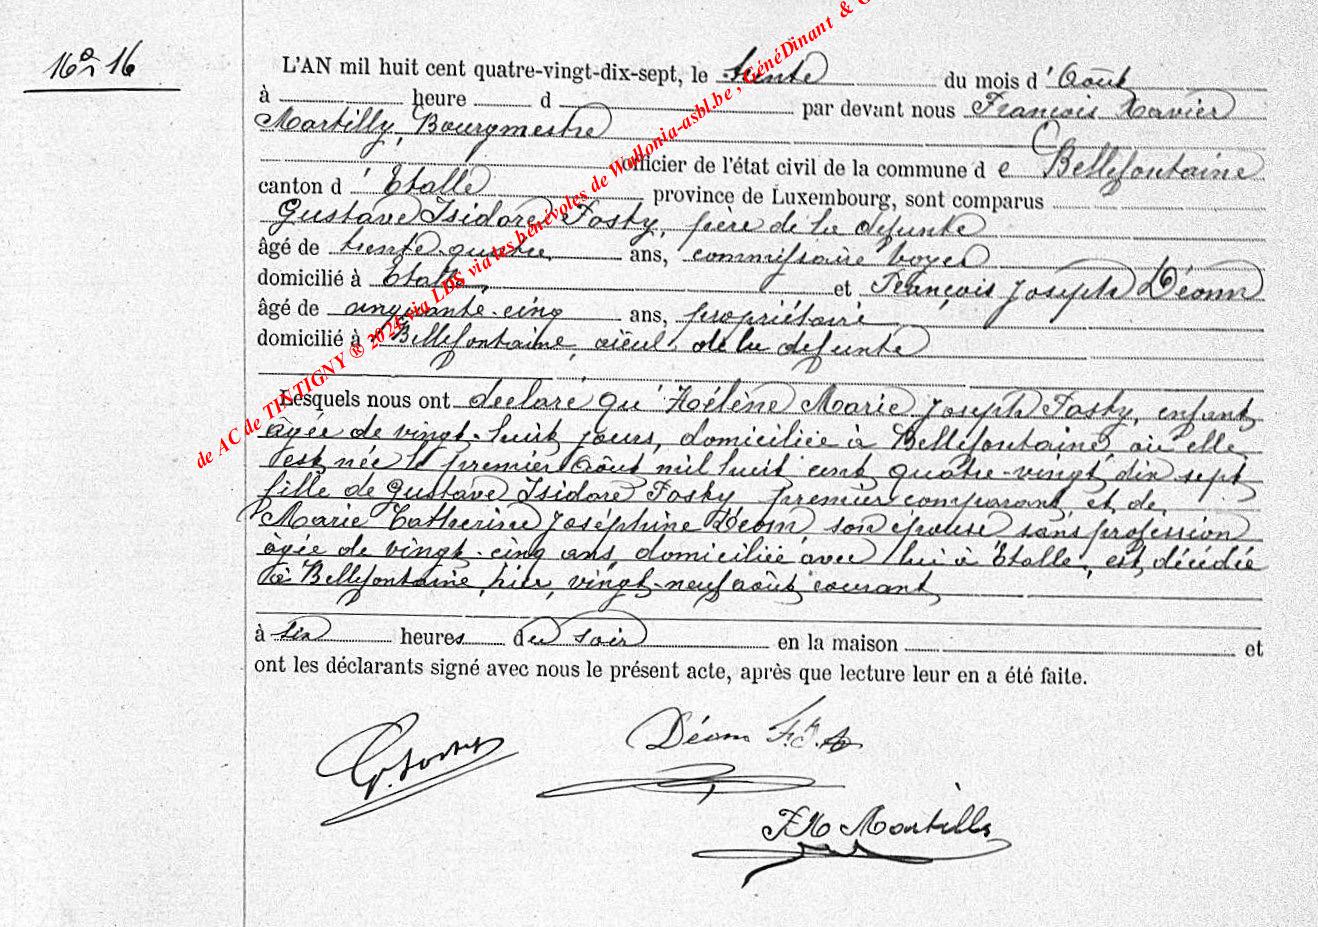 16 16
L'AN mil huit cent quatre-vingt-dix-sept, le trente du mois d' Août
à heure d par devant nous François Xavier
Martilly, Bourgmestre
officier de l'état civil de la commune d e Bellefontaine
canton d ' Etalle province de Luxembourg, sont comparus
Gustave Isidore Fosty, père de la defunte
âgé de trente-quatre ans, commissaire voyer
domicilié à Etalle, et François Joseph Déom
âgé de cinquante-cinq ans, propriétaire
domicilié à Bellefontaine, aïeul de la defunte
Lesquels nous ont declaré qu' Hélène Marie Joseph Fosty, enfant
âgée de vingt-huit jours, domiciliée à Bellefontaine, où elle
est née le premier Août mil huit cent quatre-vingt dix sept
fille de Gustave Isidore Fosty premier comparant, et de
Marie Catherine Joséphine Déom son épouse sans profession
âgée de vingt-cinq ans, domiciliée avec lui à Etalle, est décédée
à Bellefontaine, hier, vingt-neuf août courant
à six heures du soir en la maison et
ont les déclarants signé avec nous le présent acte, après que lecture leur en a été faite.
G. Fosty
Déom F.J.
FX Martilly
de AC de TINTIGNY ® 2024 via LDS via les bénévoles de Wallonia-asbl.be ; GénéDinant &